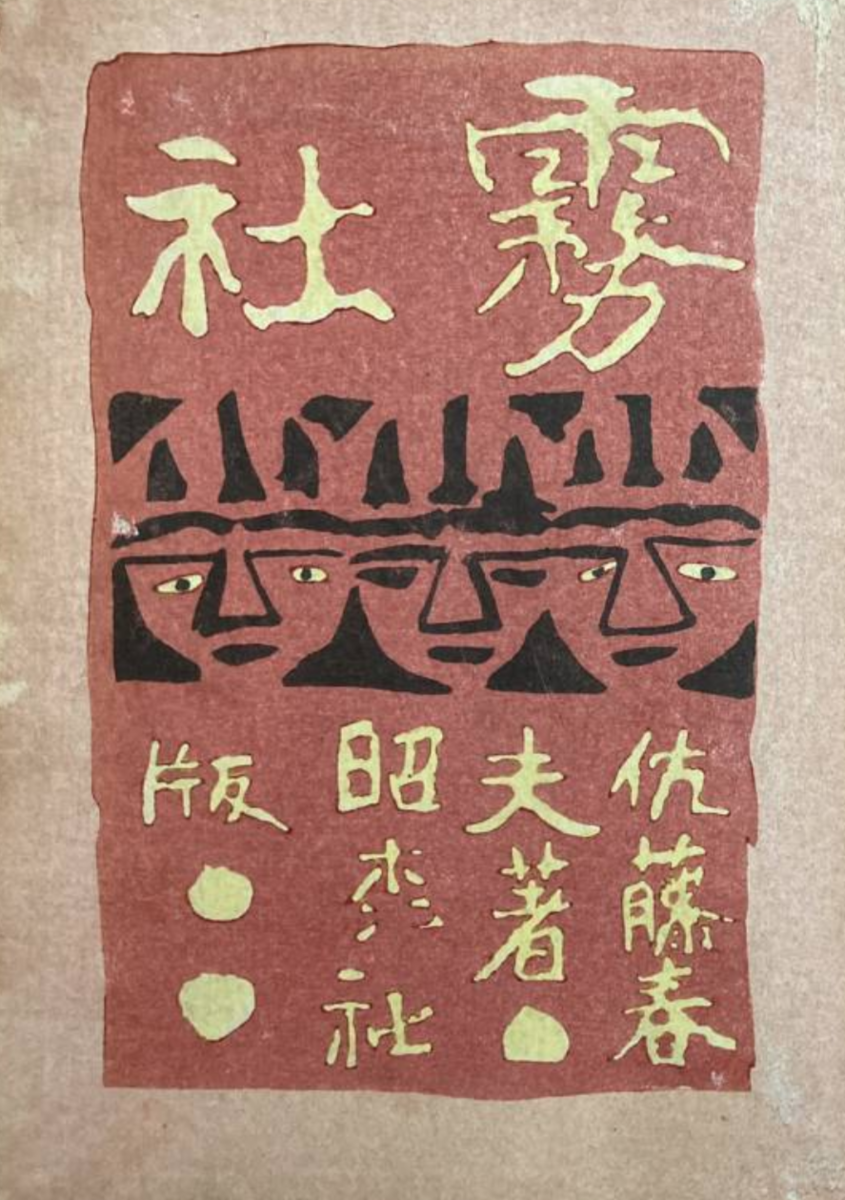 霧社
佐藤春
夫著●
昭森社
版●●